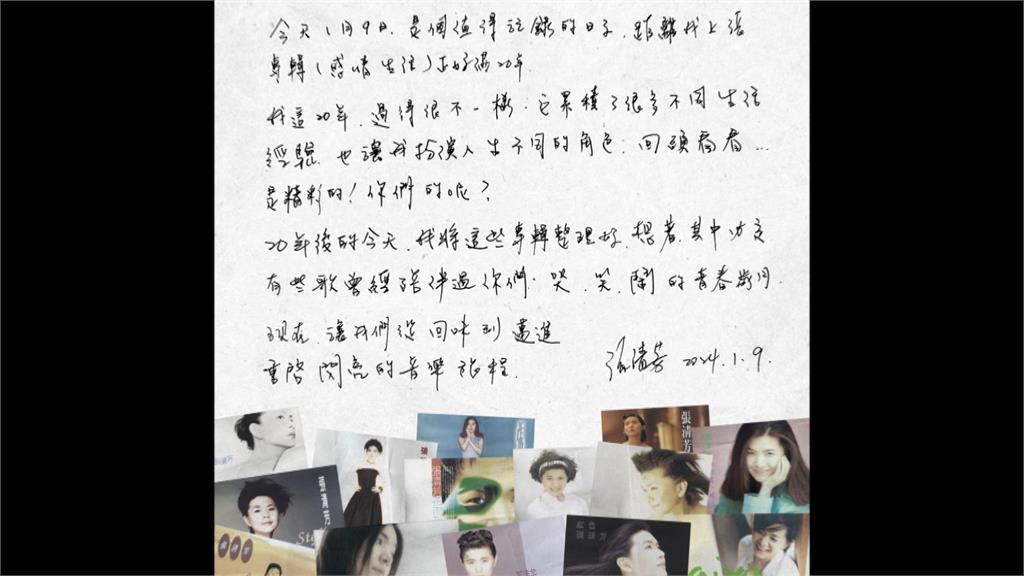 今天1月9日,是個值得記錄的日子,距離我上張
專輯(感情生活)正好滿20年.
我這20年,過得很不一樣.它累積了很多不同生活
經驗 也讓我扮演人生不同的角色.回頭看看...
是精彩的!你們的呢?
20年後的今天,我將這些專輯整理好,想著,其中
有些歌曾經陪伴過你們.哭.笑.鬧的青春歲月.
現在,讓我們從回味到邁進
重啓閃亮的音樂旅程.
張清芳 2024.1.9.
張清芳
紅色
張清芳